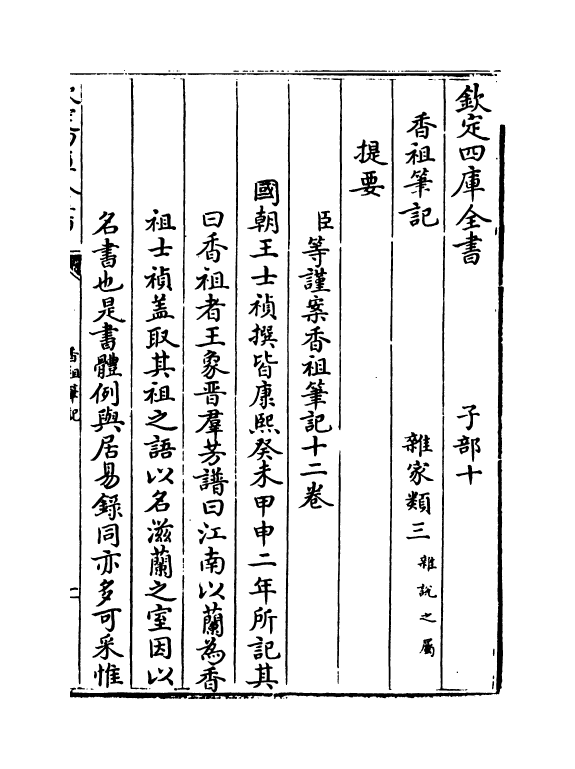 欽定四庫全書　子部十
香祖筆記　雜家類三雜說之屬
提要
臣等謹案香祖筆記十二卷
國朝王士禎撰皆康熙癸未甲申二年所記其
曰香祖者王象晋羣芳譜曰江南以蘭為香
祖士禎蓋取其祖之語以名滋蘭之室因以
名書也是書體例與居易錄同亦多可采惟
香祖筆記